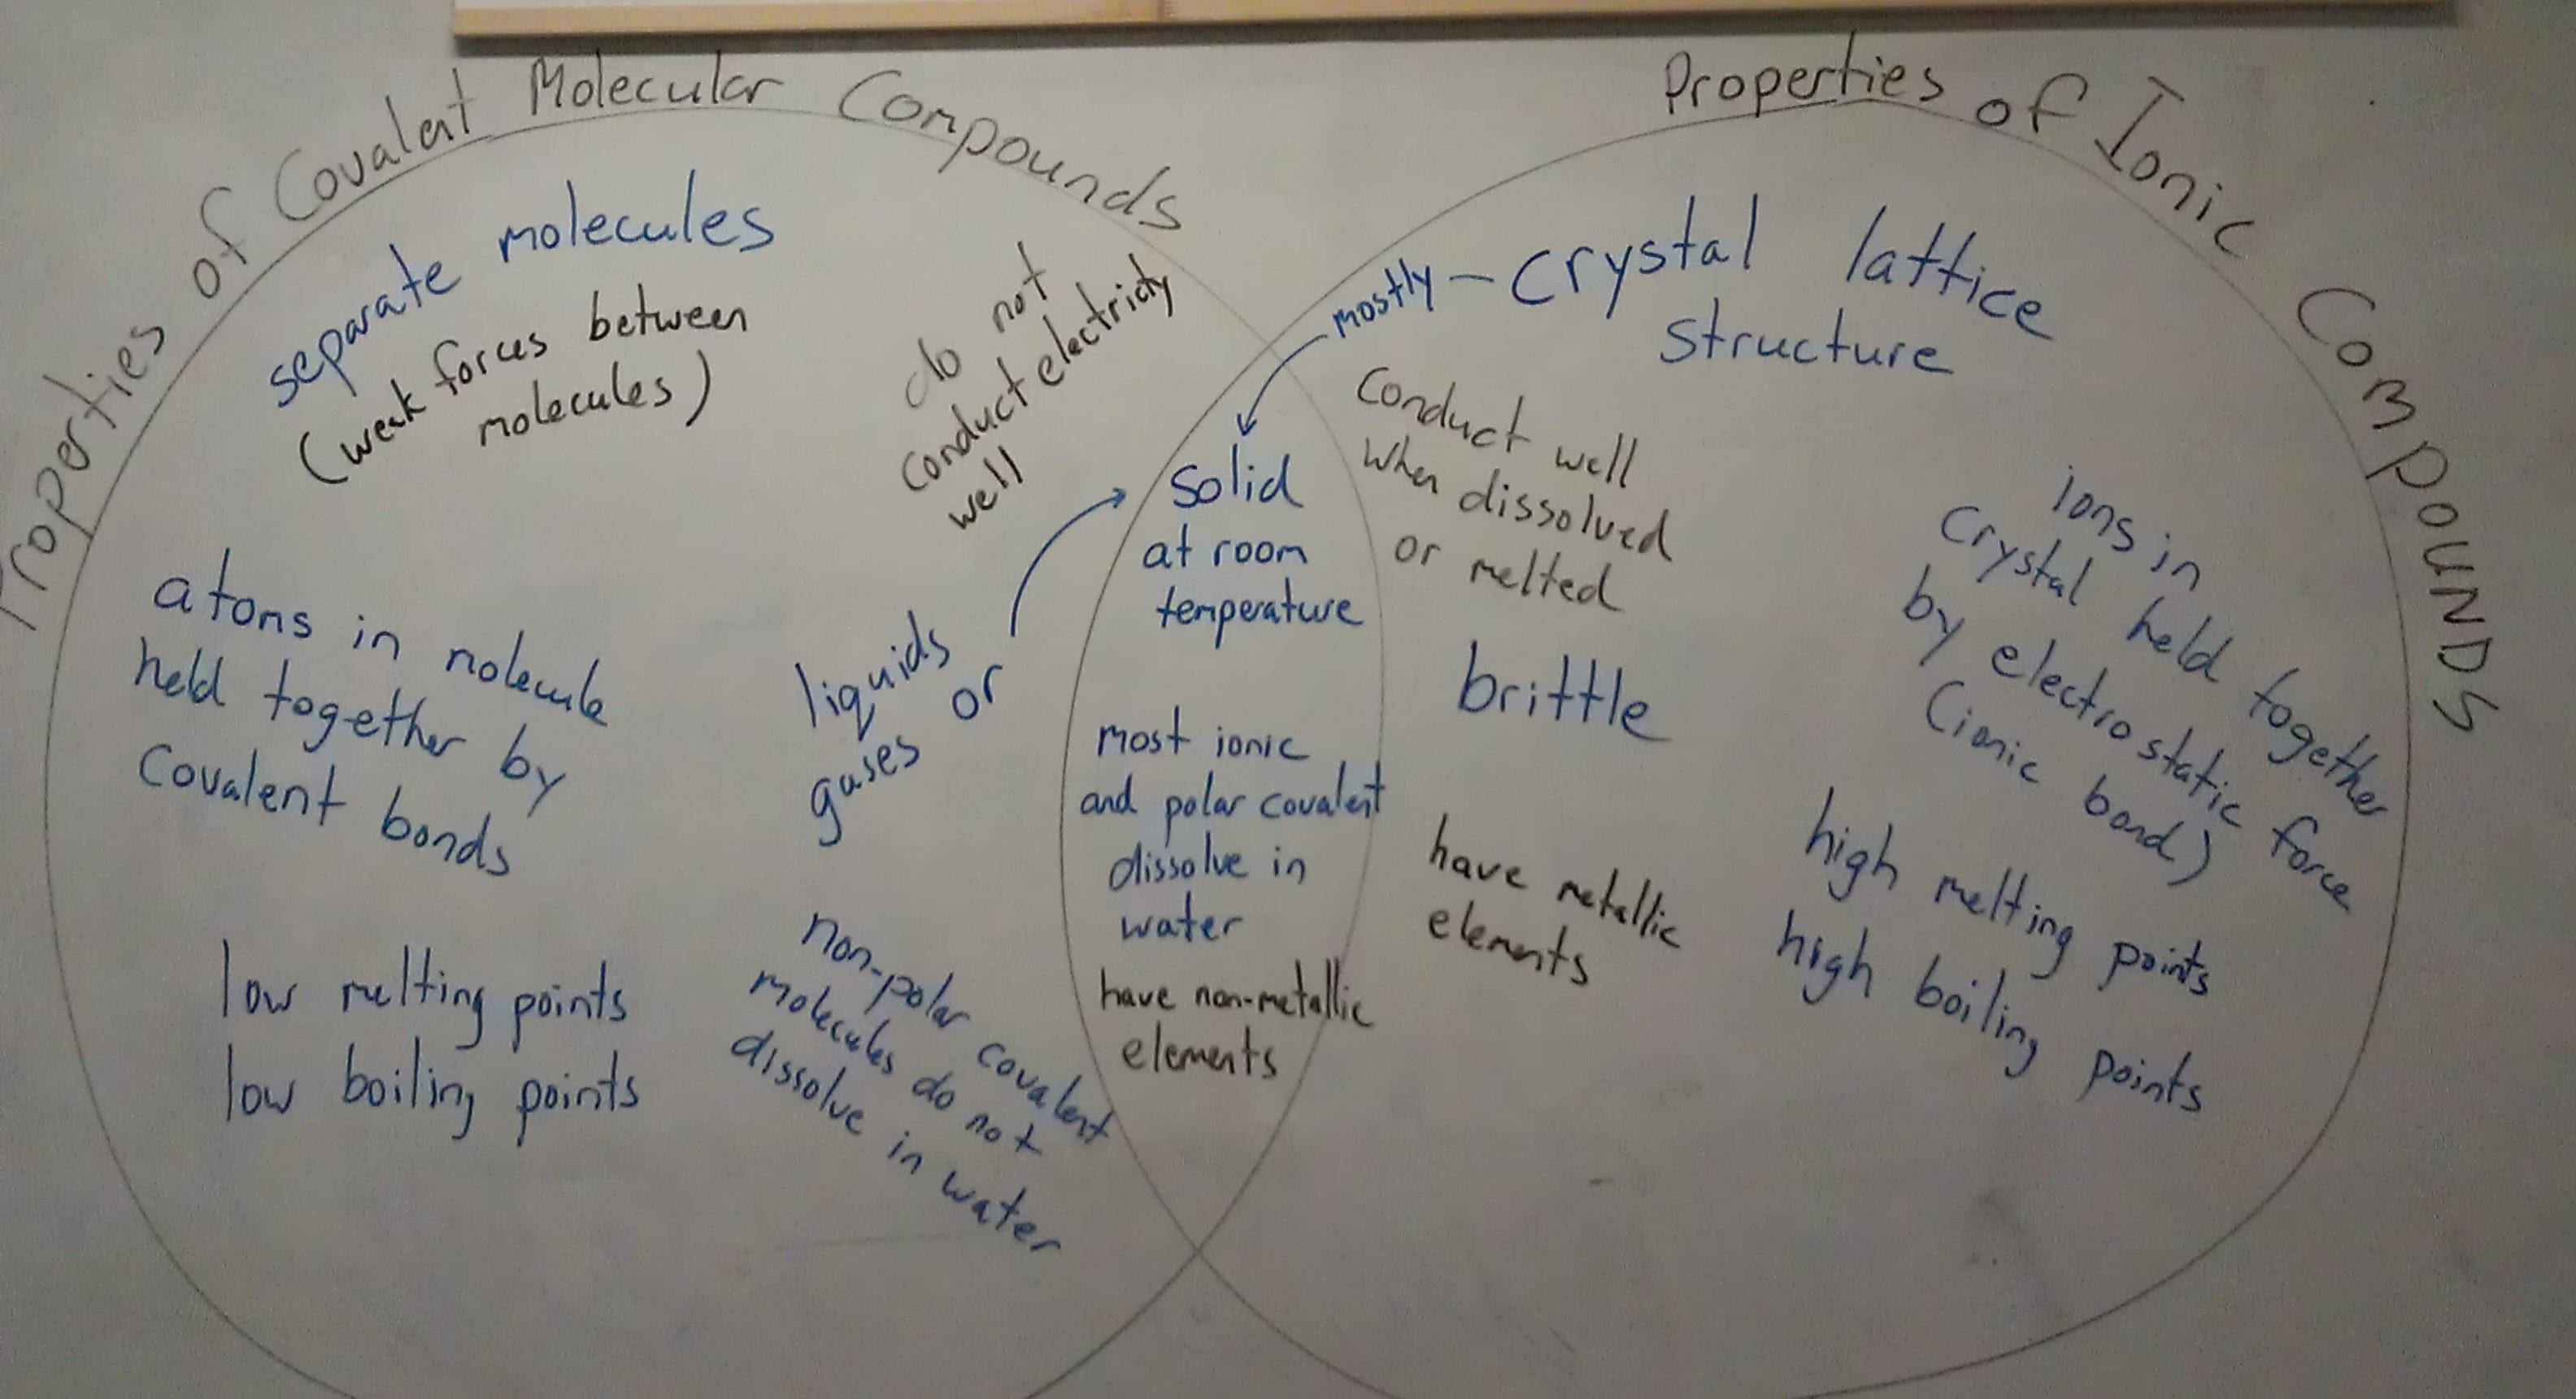 Properties of Covalent Molecular Compounds
separate molecules
(weak forces between
molecules)
do not
conduct electricity
well
atoms in molecule
held together by
covalent bonds
liquids
gases or
low melting points
low boiling points
non-polar covalent
molecules do not
dissolve in water
solid
at room
temperature
most ionic
and polar covalent
dissolve in
water
have non-metallic
elements
Properties of Ionic Compounds
mostly - crystal lattice
structure
conduct well
when dissolved
or melted
brittle
have metallic
elements
ions in
crystal held together
by electrostatic force
(ionic bond)
high melting points
high boiling points